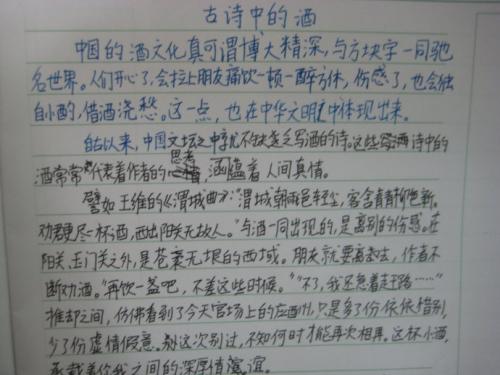 古诗中的酒
中国的酒文化真可谓博大精深,与方块字一同驰
名世界。人们开心了,会拉上朋友痛饮一顿一醉方休,伤感了,也会独
自小酌,借酒浇愁。这一点,也在中华文明之中体现出来。
自古以来,中国文坛之中就不缺乏写酒的诗。这些酒诗中的
酒常常代表着作者的思考,涵蕴着人间真情。
譬如王维的《渭城曲》:"渭城朝雨浥轻尘,客舍青青柳色新。
劝君更尽一杯酒,西出阳关无故人。"与酒一同出现的,是离别的伤感。在
阳关、玉门关之外,是苍衷无垠的西域。朋友就要离去,作者不
断劝酒。"再饮一盏吧,不差这些时候。""不了,我还急着赶路……"
推却之间,仿佛看到了今天官场上的应酬,只是多了份依依惜别,
少了份虚情假意。别这次别过,不知何时才能再次相再。这杯小酒,
承载着你我之间的深厚情谊。